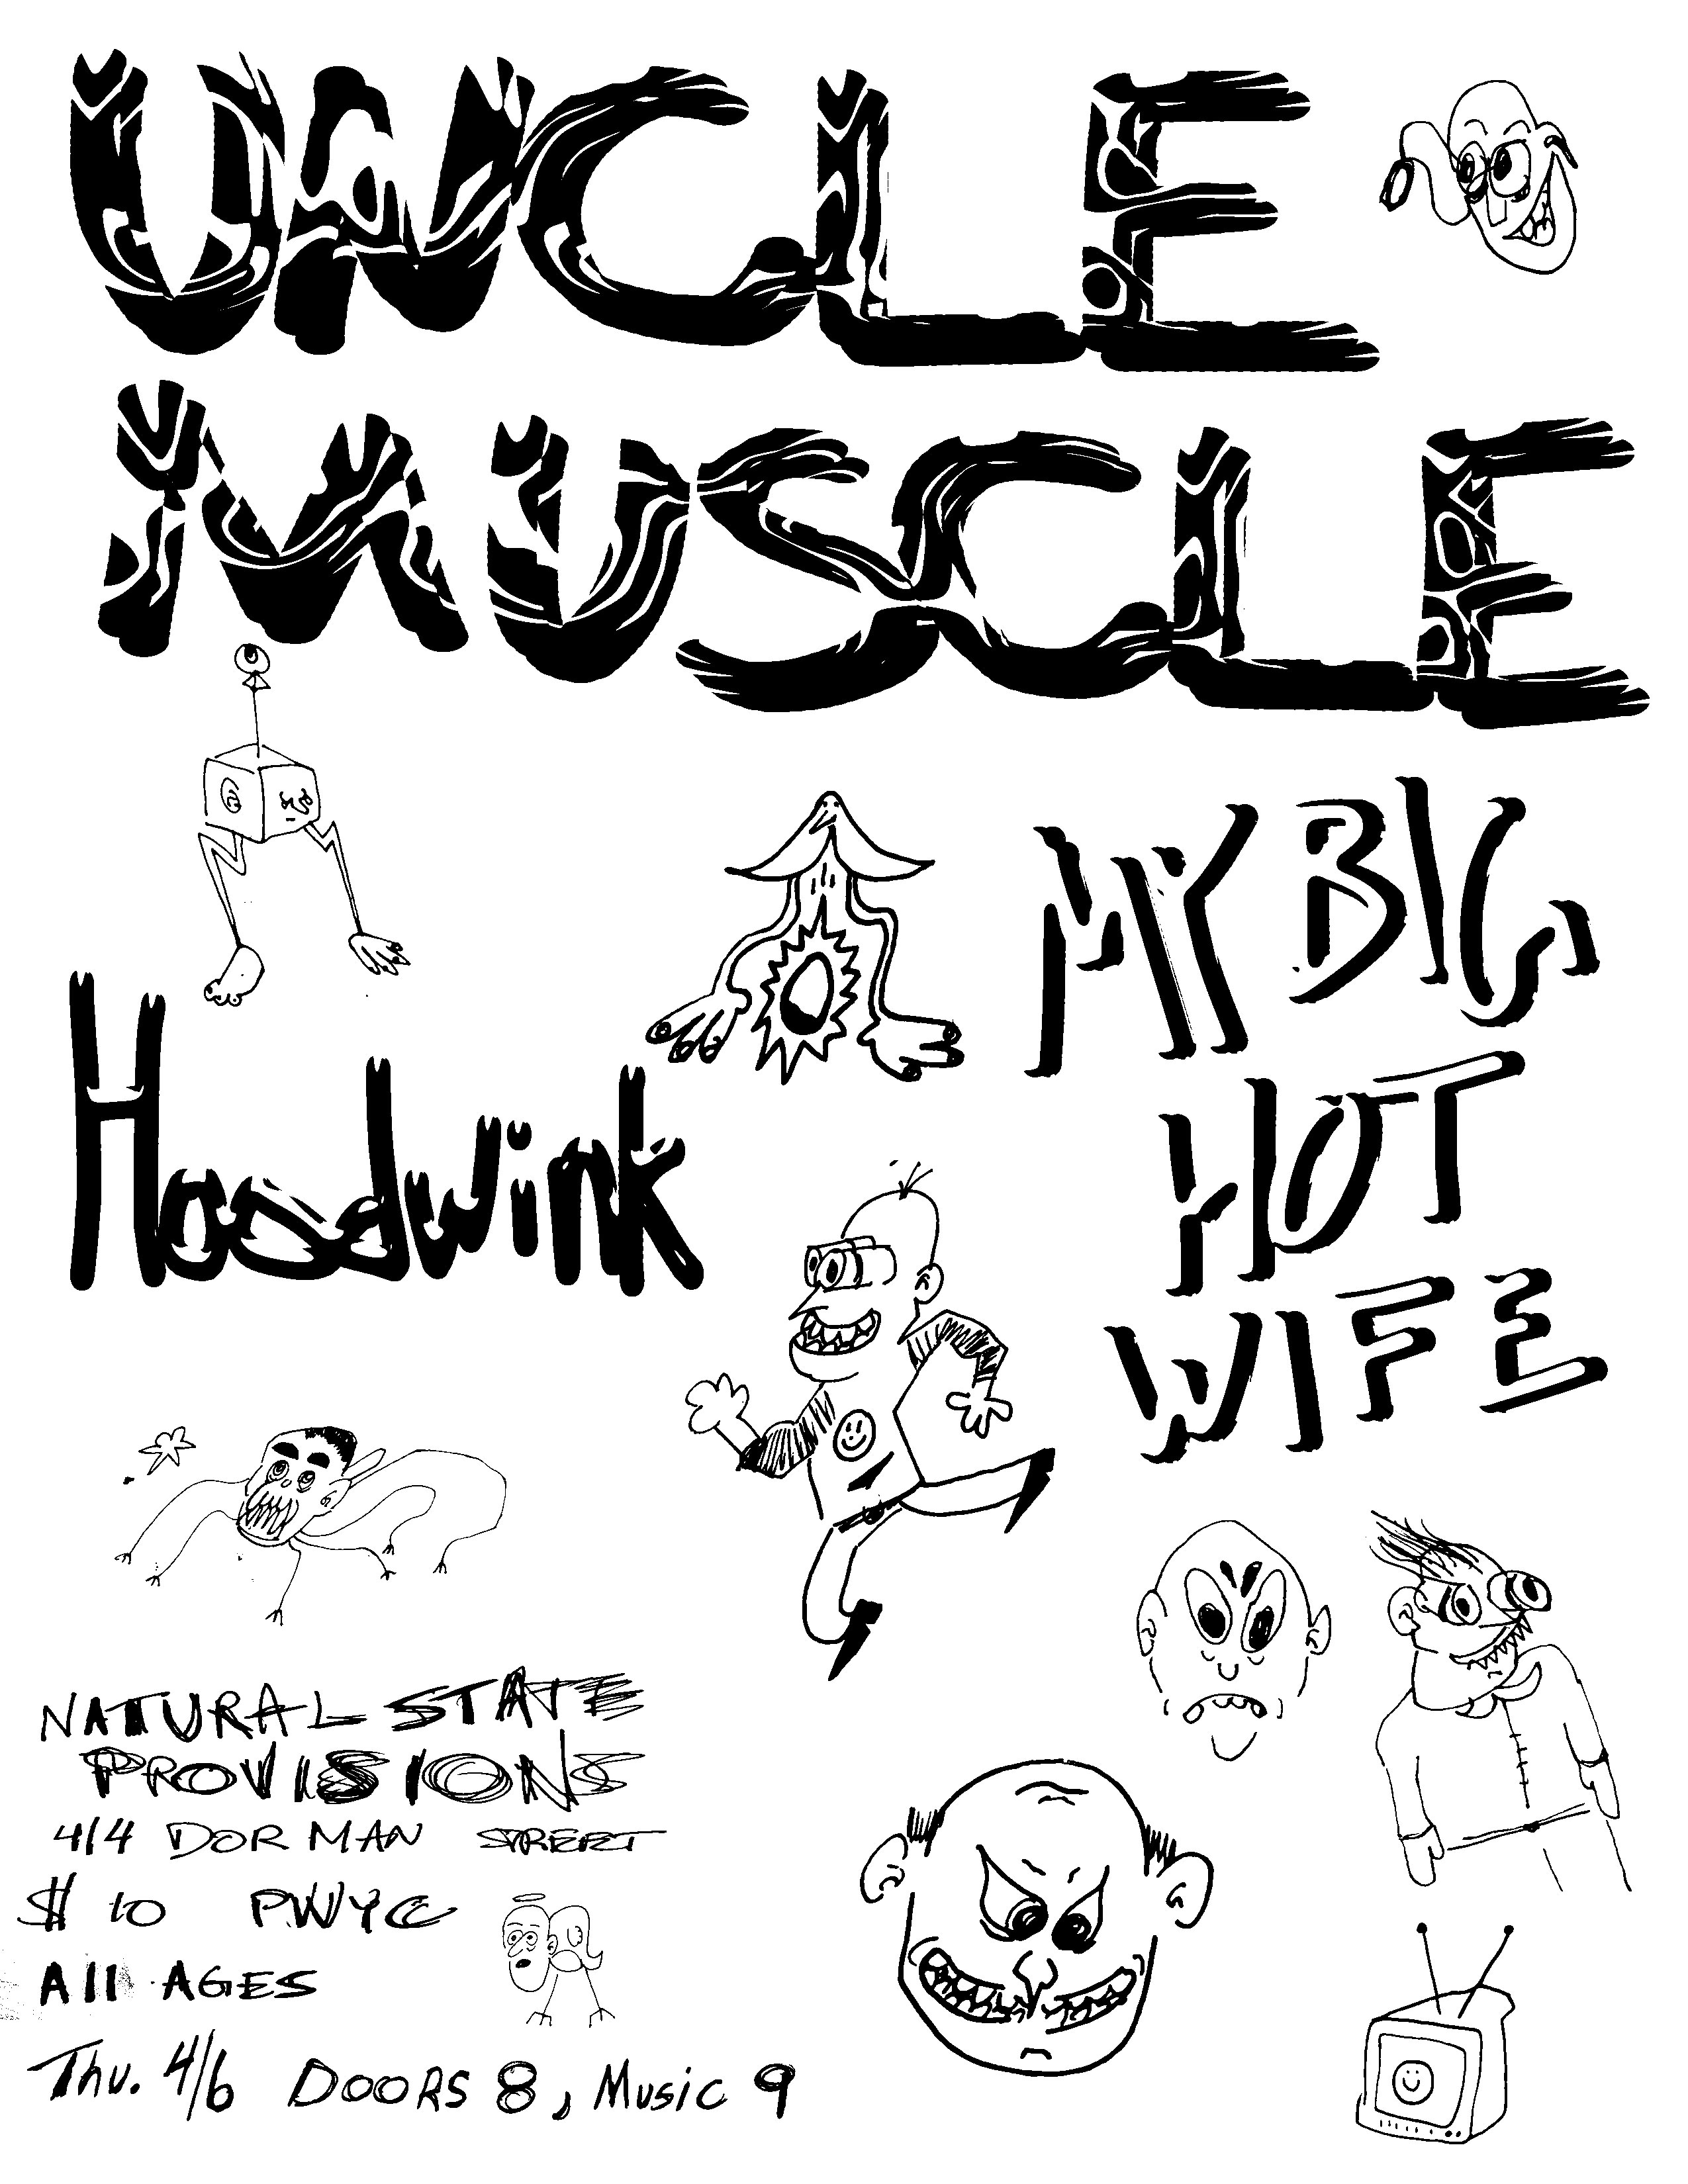 UNCLE
MUSCLE
MY BIG
HOT
WIFE
Hoodwink
NATURAL STATE
PROVISIONS
414 DORMAN STREET
$10 PWYC
All AGES
Thu. 4/6 DOORS 8, MUSIC 9